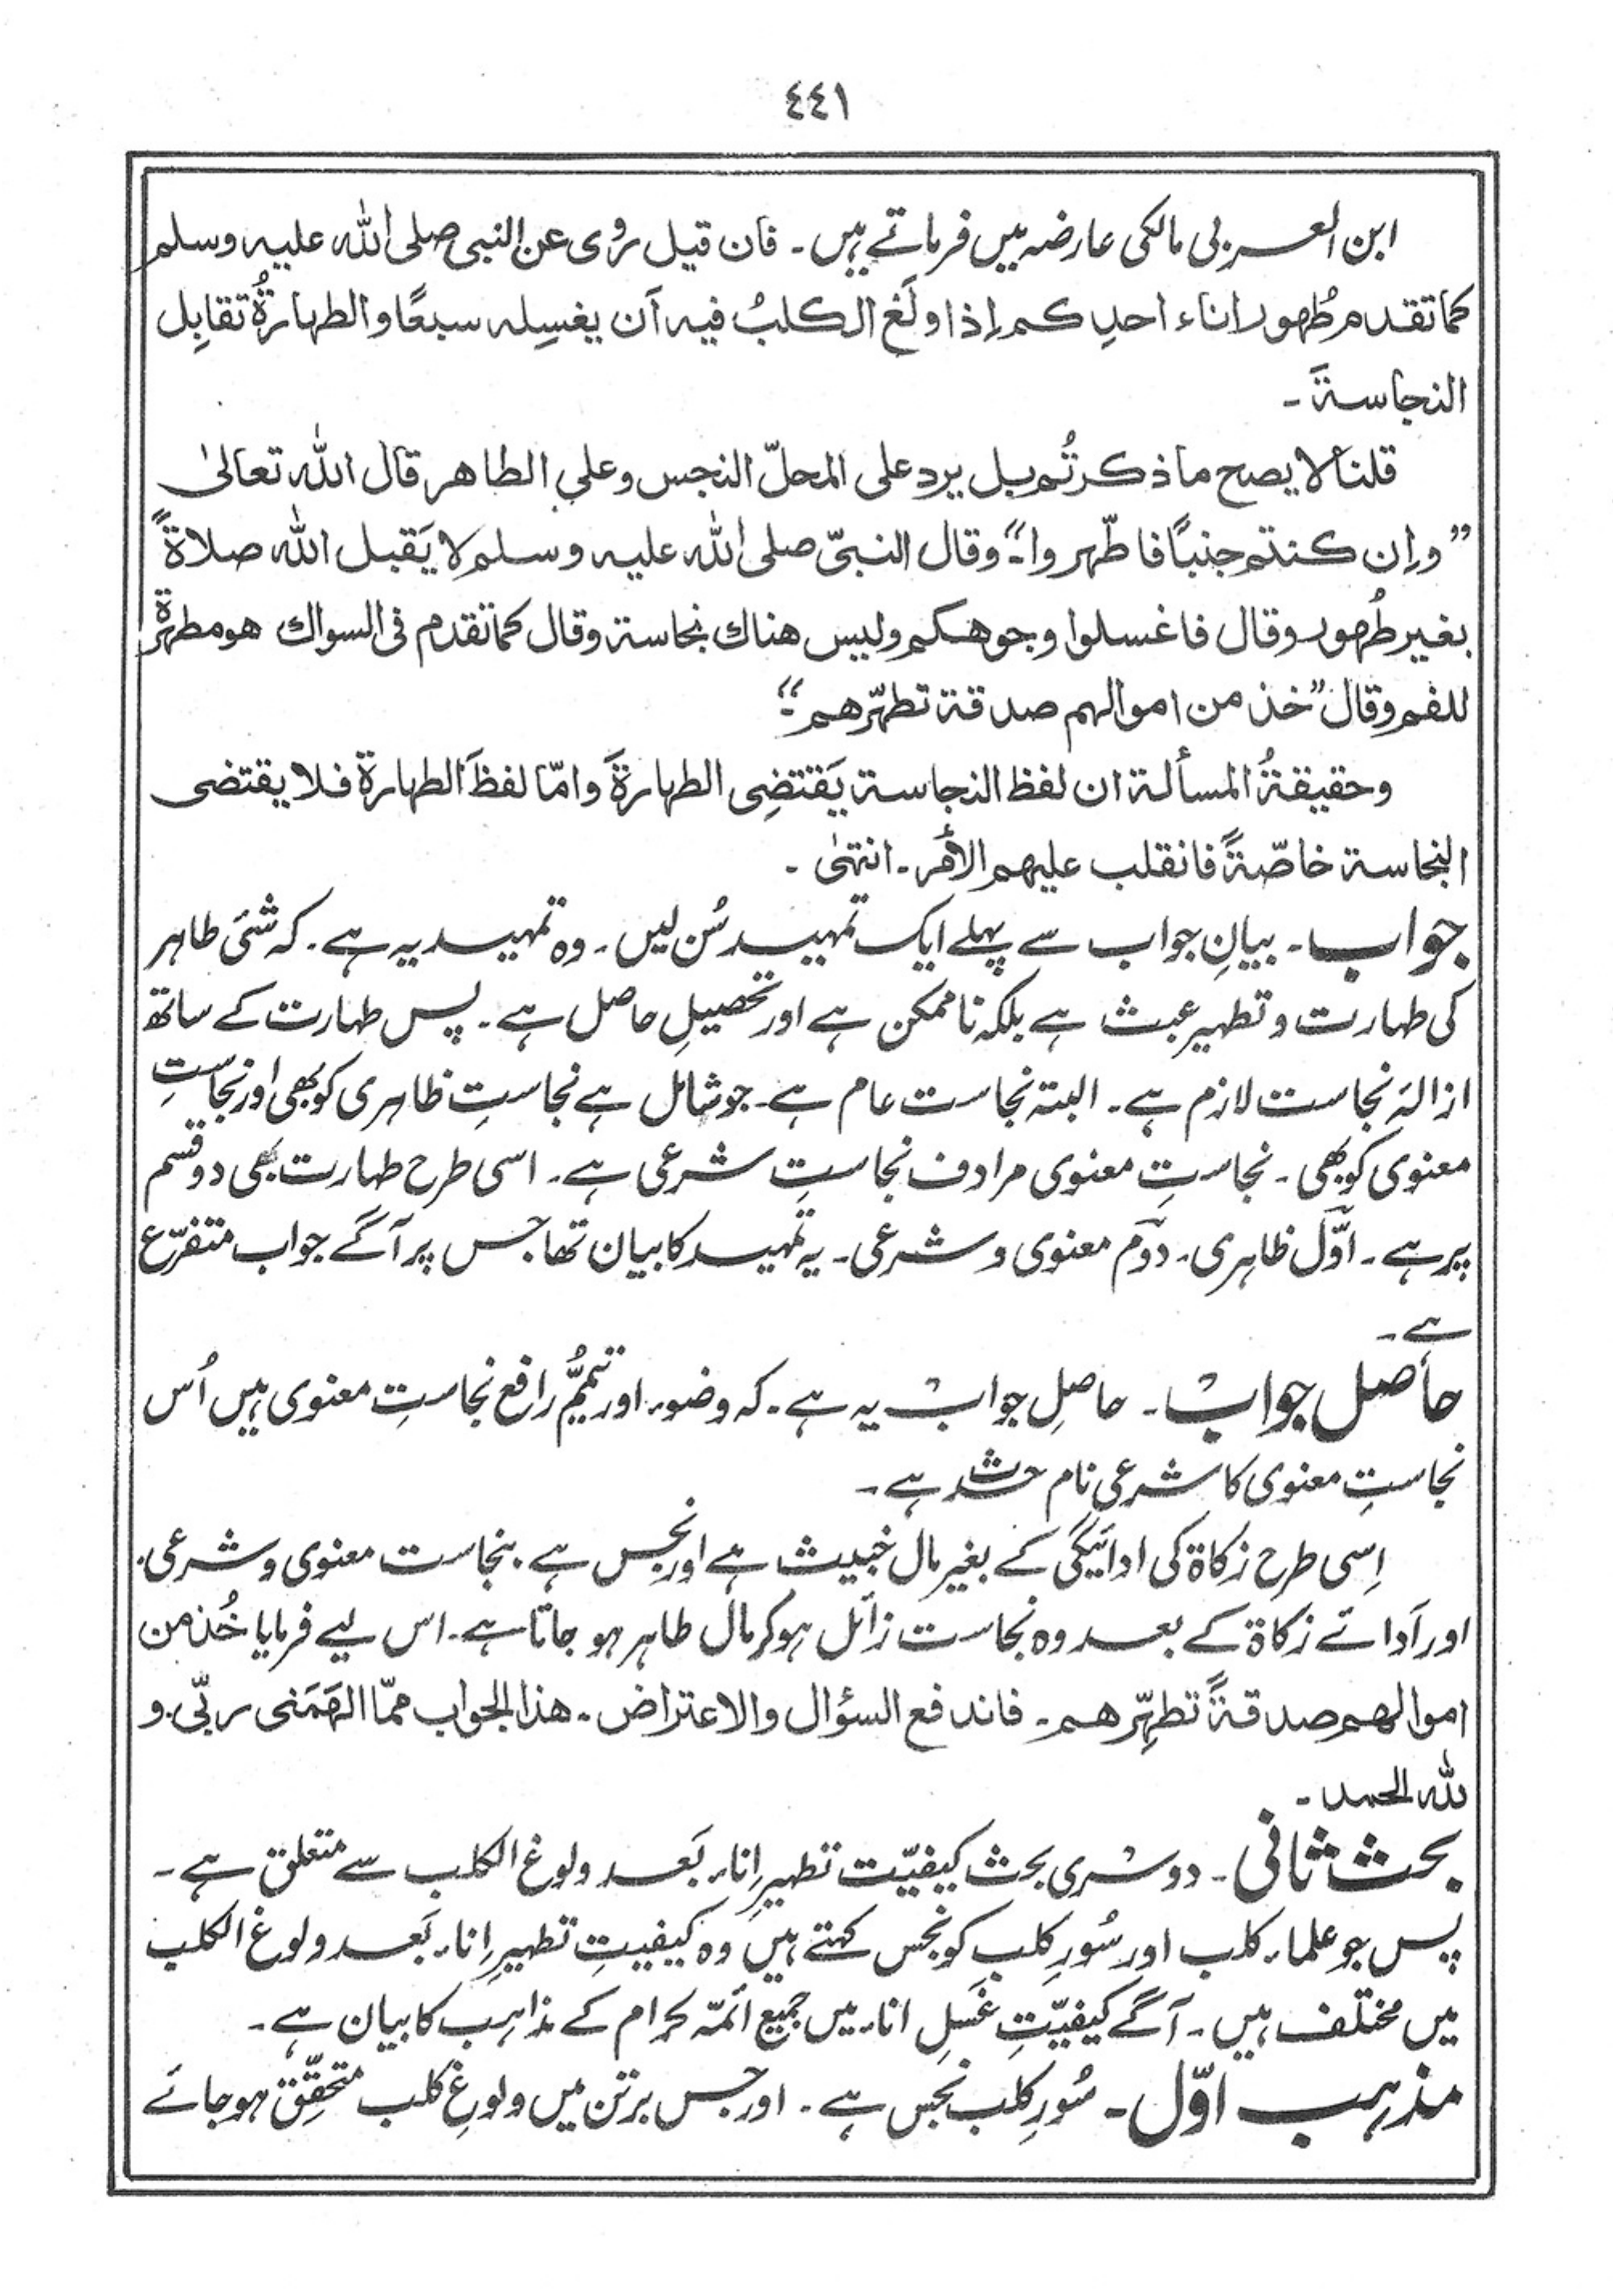 ٤٤١
ابن العربی مالکی عارضہ میں فرماتے ہیں۔ فان قیل رُوِی عن النبی صلی اللہ علیہ وسلم
کما تقدم طُهور اناء احدِکم إذا ولَغ الکلبُ فیہ اَن یغسِلہ سبعًا والطہارۃُ تقابِل
النجاسۃَ ۔
قلنا لا یصح ما ذکرتُم بل یرد علی المحلّ النجس وعلی الطاهر قال اللہ تعالیٰ
”وإن کنتم جنبًا فاطّهروا۔“ وقال النبیّ صلی اللہ علیہ وسلم لا یَقبل اللہ صلاۃً
بغیر طُهور وقال فاغسلوا وجوهکم ولیس هناك نجاسۃ وقال کما تقدم فی السواك هو مطهرۃ
للفم وقال ”خذ من اموالهم صدقۃ تطهّرهم۔“
وحقیقۃُ المسألۃ ان لفظ النجاسۃ یَقتضِی الطہارۃَ وامّا لفظَ الطہارۃ فلا یقتضی
النجاسۃ خاصّۃً فانقلب علیهم الأمر۔ انتہیٰ ۔
جواب۔ بیانِ جواب سے پہلے ایک تمہید سُن لیں۔ وہ تمہید یہ ہے۔ کہ شئی طاہر
کی طہارت و تطہیر عبث ہے بلکہ ناممکن ہے اور تحصیلِ حاصل ہے۔ پس طہارت کے ساتھ
ازالۂ نجاست لازم ہے۔ البتہ نجاست عام ہے۔ جو شامل ہے نجاستِ ظاہری کو بھی اور نجاستِ
معنوی کو بھی۔ نجاستِ معنوی مرادف نجاستِ شرعی ہے۔ اسی طرح طہارت بھی دو قسم
پر ہے۔ اوّل ظاہری۔ دوّم معنوی و شرعی۔ یہ تمہید کا بیان تھا جس پر آگے جواب متفرّع
ہے۔
حاصل جواب۔ حاصلِ جواب یہ ہے۔ کہ وضوء اور تیمُّم رافع نجاستِ معنوی ہیں اُس
نجاستِ معنوی کا شرعی نام حدث ہے۔
اِسی طرح زکاۃ کی ادائیگی کے بغیر مال خبیث ہے اور نجس ہے بنجاست معنوی و شرعی۔
اور اَدائے زکاۃ کے بعد وہ نجاست زائل ہوکر مال طاہر ہو جاتا ہے۔ اس لیے فرمایا خُذ من
اموالهم صدقۃً تطهِّرهم۔ فاندفع السؤال والاعتراض۔ هذا الجواب ممّا الهَمَنی ربّی۔ و
للہ الحمد ۔
بحث ثانی۔ دوسری بحث کیفیّت تطہیرِ اناء بَعد ولوغ الکلب سے متعلق ہے۔
پس جو علماء کلب اور سُورِ کلب کو نجس کہتے ہیں وہ کیفیتِ تطہیرِ اناء بَعد ولوغ الکلب
میں مختلف ہیں۔ آگے کیفیّتِ غَسلِ اناء میں جمیع ائمّہ کرام کے مذاہب کا بیان ہے۔
مذہب اوّل۔ سُورِ کلب نجس ہے۔ اور جس برتن میں ولوغِ کلب متحقِّق ہو جائے